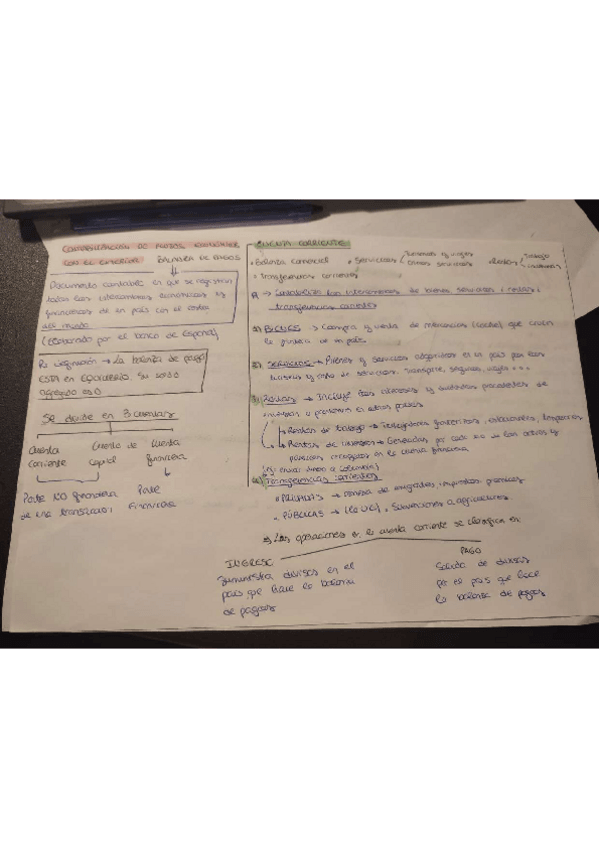 CONTABILIZACIÓN DE FLUJOS ECONÓMICOS
CON EL EXTERIOR BALANZA DE PAGOS
Documento contable en que se registran
todos los intercambios económicos y
financieros de un país con el resto
del mundo
(Elaborado por el banco de España)
Por definición → La balanza de pagos
ESTÁ EN EQUILIBRIO. Su saldo
agregado es 0
Se divide en 3 cuentas
Cuenta corriente
Cuenta de Capital
Cuenta financiera
Parte NO financiera
de una transacción
Parte
Financiera
CUENTA CORRIENTE
• Balanza comercial • Servicios Turismo y viajes
Otros servicios • Rentas Trabajo
• Transferencias corrientes
→ Contabilizan los intercambios de bienes, servicios, rentas y
transferencias corrientes
1) BIENES → Compra y venta de mercancías (coches) que cruzan
la frontera de un país.
2) SERVICIOS → Bienes y servicios adquiridos en el país por los
turistas y resto de servicios, transporte, seguros, ...
3) Rentas → Incluye los intereses y dividendos procedentes de
en otros países
→ Rentas de trabajo → Trabajadores fronterizos, estacionales, temporeros
→ Rentas de inversión → Generadas por cada uno de los activos y
pasivos en la cuenta financiera
(Ej: enviar dinero a Colombia)
4) Transferencias corrientes
• PRIVADAS → remesa de emigrantes, impuestos,
• PÚBLICAS → (la UE), Subvenciones a agricultores
Las operaciones en la cuenta corriente se clasifican en:
INGRESO
Suministra divisas en el
país que hace la balanza
de pagos
PAGO
Salida de divisas
por el país que hace
la balanza de pagos